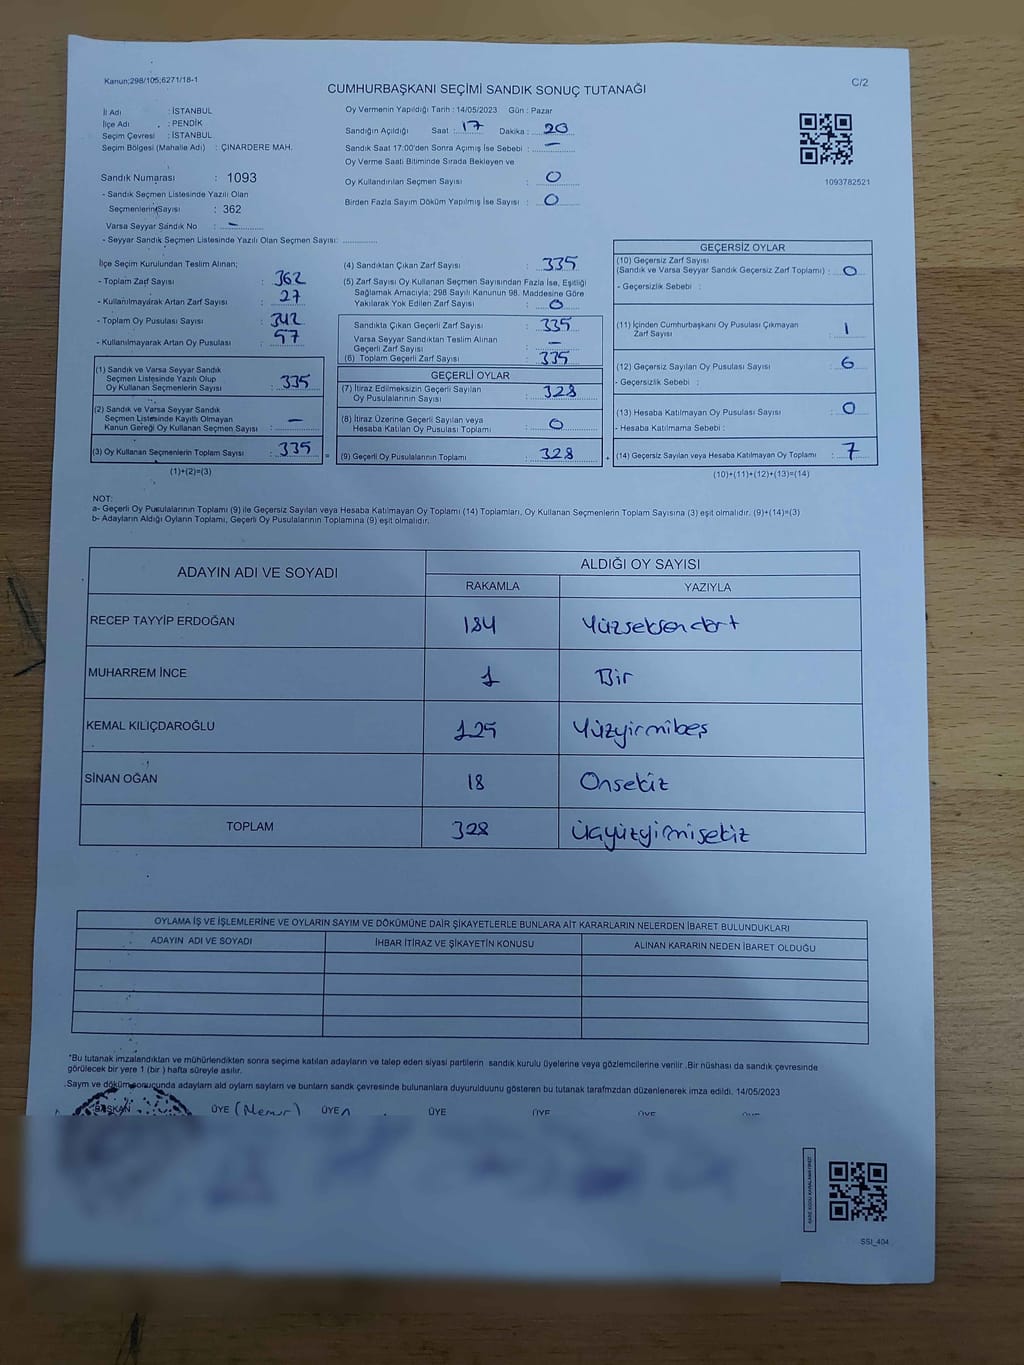 Kanun;298/105;6271/18-1
C/2
CUMHURBAŞKANI SEÇİMİ SANDIK SONUÇ TUTANAĞI
İl Adı : İSTANBUL
İlçe Adı : PENDİK
Seçim Çevresi : İSTANBUL
Seçim Bölgesi (Mahalle Adı) : ÇINARDERE MAH.
Oy Vermenin Yapıldığı Tarih : 14/05/2023 Gün : Pazar
Sandığın Açıldığı Saat : 17 Dakika : 20
Sandık Saat 17:00'den Sonra Açımış İse Sebebi : —
Oy Verme Saati Bitiminde Sırada Bekleyen ve
Oy Kullandırılan Seçmen Sayısı : 0
Birden Fazla Sayım Döküm Yapılmış İse Sayısı : 0
1093782521
Sandık Numarası : 1093
- Sandık Seçmen Listesinde Yazılı Olan
Seçmenlerin Sayısı : 362
Varsa Seyyar Sandık No : —
- Seyyar Sandık Seçmen Listesinde Yazılı Olan Seçmen Sayısı: ..............
İlçe Seçim Kurulundan Teslim Alınan;
- Toplam Zarf Sayısı : 362
- Kullanılmayarak Artan Zarf Sayısı : 27
- Toplam Oy Pusulası Sayısı : 342
- Kullanılmayarak Artan Oy Pusulası : 57
(1) Sandık ve Varsa Seyyar Sandık
Seçmen Listesinde Yazılı Olup
Oy Kullanan Seçmenlerin Sayısı : 335
(2) Sandık ve Varsa Seyyar Sandık
Seçmen Listesinde Kayıtlı Olmayan
Kanun Gereği Oy Kullanan Seçmen Sayısı : —
(3) Oy Kullanan Seçmenlerin Toplam Sayısı : 335
(1)+(2)=(3)
(4) Sandıktan Çıkan Zarf Sayısı : 335
(5) Zarf Sayısı Oy Kullanan Seçmen Sayısından Fazla İse, Eşitliği
Sağlamak Amacıyla; 298 Sayılı Kanunun 98. Maddesine Göre
Yakılarak Yok Edilen Zarf Sayısı : 0
Sandıkta Çıkan Geçerli Zarf Sayısı : 335
Varsa Seyyar Sandıktan Teslim Alınan
Geçerli Zarf Sayısı : —
(6) Toplam Geçerli Zarf Sayısı : 335
GEÇERLİ OYLAR
(7) İtiraz Edilmeksizin Geçerli Sayılan
Oy Pusulalarının Sayısı : 328
(8) İtiraz Üzerine Geçerli Sayılan veya
Hesaba Katılan Oy Pusulası Toplamı : 0
= (9) Geçerli Oy Pusulalarının Toplamı : 328
GEÇERSİZ OYLAR
(10) Geçersiz Zarf Sayısı
(Sandık ve Varsa Seyyar Sandık Geçersiz Zarf Toplamı) : 0
- Geçersizlik Sebebi :
(11) İçinden Cumhurbaşkanı Oy Pusulası Çıkmayan
Zarf Sayısı : 1
(12) Geçersiz Sayılan Oy Pusulası Sayısı : 6
- Geçersizlik Sebebi :
(13) Hesaba Katılmayan Oy Pusulası Sayısı : 0
- Hesaba Katılmama Sebebi :
+ (14) Geçersiz Sayılan veya Hesaba Katılmayan Oy Toplamı : 7
(10)+(11)+(12)+(13)=(14)
NOT:
a- Geçerli Oy Pusulalarının Toplamı (9) ile Geçersiz Sayılan veya Hesaba Katılmayan Oy Toplamı (14) Toplamları, Oy Kullanan Seçmenlerin Toplam Sayısına (3) eşit olmalıdır. (9)+(14)=(3)
b- Adayların Aldığı Oyların Toplamı, Geçerli Oy Pusulalarının Toplamına (9) eşit olmalıdır.
ADAYIN ADI VE SOYADI
ALDIĞI OY SAYISI
RAKAMLA YAZIYLA
RECEP TAYYİP ERDOĞAN 184 Yüzseksendört
MUHARREM İNCE 1 Bir
KEMAL KILIÇDAROĞLU 125 Yüzyirmibeş
SİNAN OĞAN 18 Onsekiz
TOPLAM 328 Üçyüzyirmisekiz
OYLAMA İŞ VE İŞLEMLERİNE VE OYLARIN SAYIM VE DÖKÜMÜNE DAİR ŞİKAYETLERLE BUNLARA AİT KARARLARIN NELERDEN İBARET BULUNDUKLARI
ADAYIN ADI VE SOYADI İHBAR İTİRAZ VE ŞİKAYETİN KONUSU ALINAN KARARIN NEDEN İBARET OLDUĞU
*Bu tutanak imzalandıktan ve mühürlendikten sonra seçime katılan adayların ve talep eden siyasi partilerin sandık kurulu üyelerine veya gözlemcilerine verilir .Bir nüshası da sandık çevresinde
görülecek bir yere 1 (bir ) hafta süreyle asılır.
.Saym ve döküm sonucunda adayların ald oyların sayları ve bunların sandk çevresinde bulunanlara duyurulduunu gösteren bu tutanak tarafmzdan düzenlenerek imza edildi. 14/05/2023
BAŞKAN ÜYE (Memur) ÜYE ÜYE ÜYE ÜYE
SSI_404